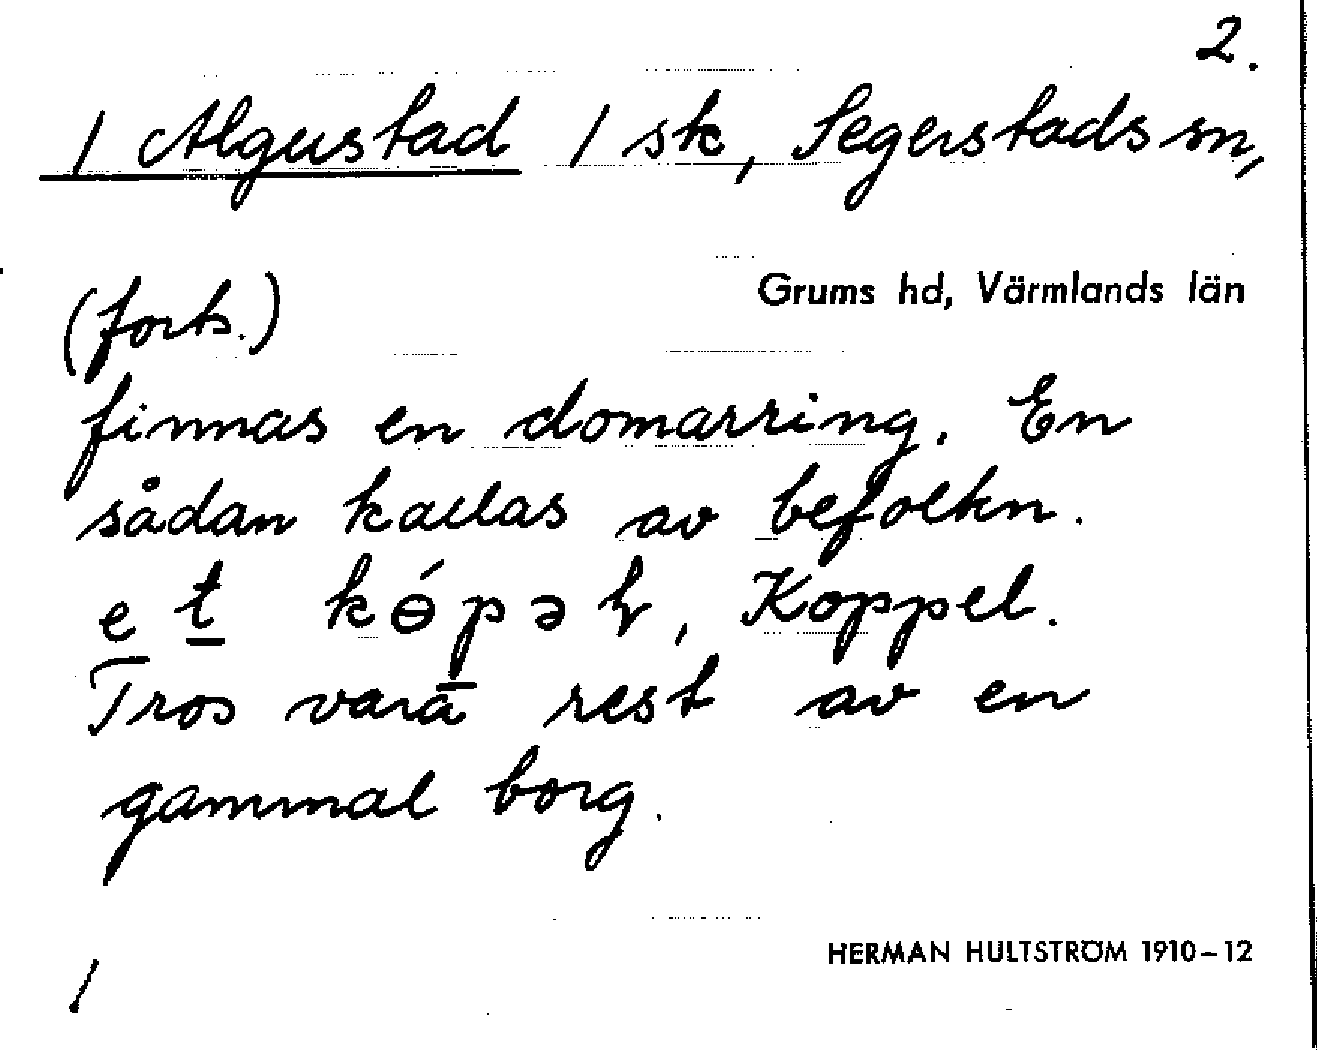 2.
/ Algustad / sk, Segerstads sn,
Grums hd, Värmlands län
(forts.)
finnas en domarring. En
sådan kallas av befolkn.
e t̲ kɵ́p̲əɫ, Koppel.
Tros vara rest av en
gammal borg.
/
HERMAN HULTSTRÖM 1910–12